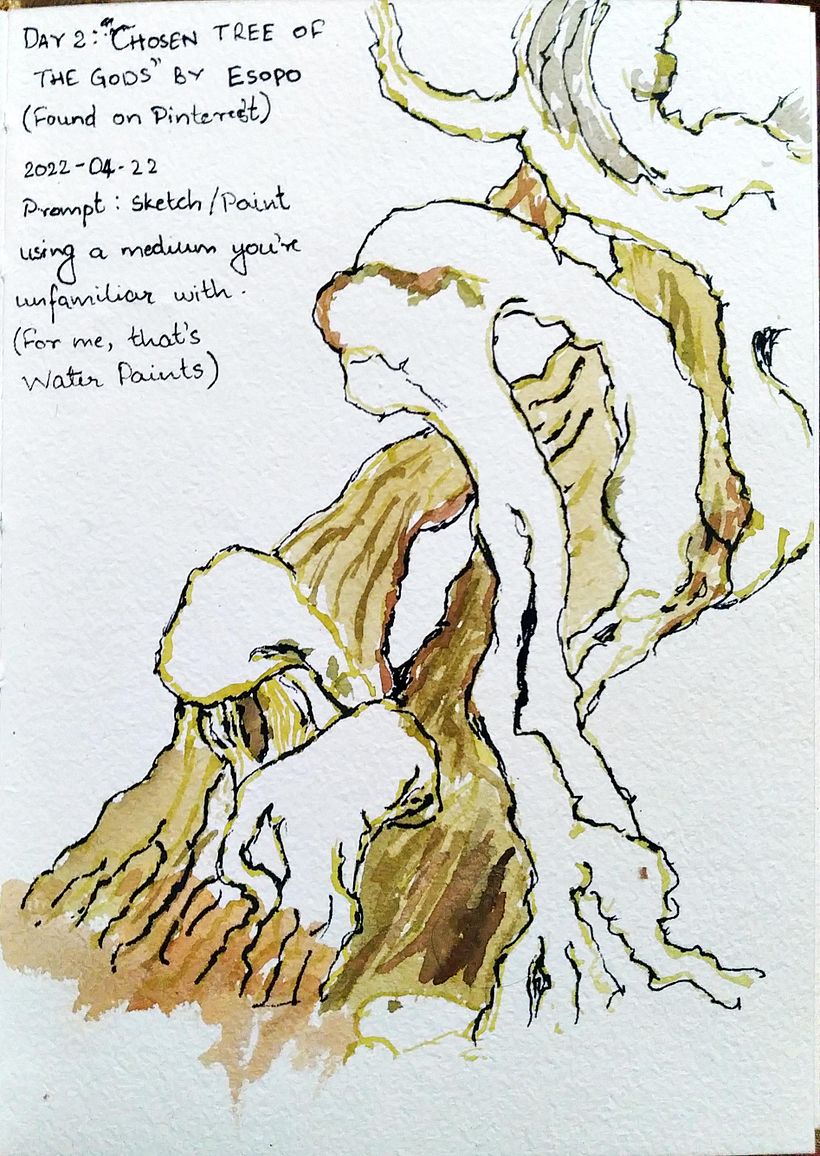 DAY 2: "CHOSEN TREE OF
THE GODS" BY ESOPO
(Found on Pinterest)
2022-04-22
Prompt: Sketch/Paint
using a medium you're
unfamiliar with.
(For me, that's
Water Paints)